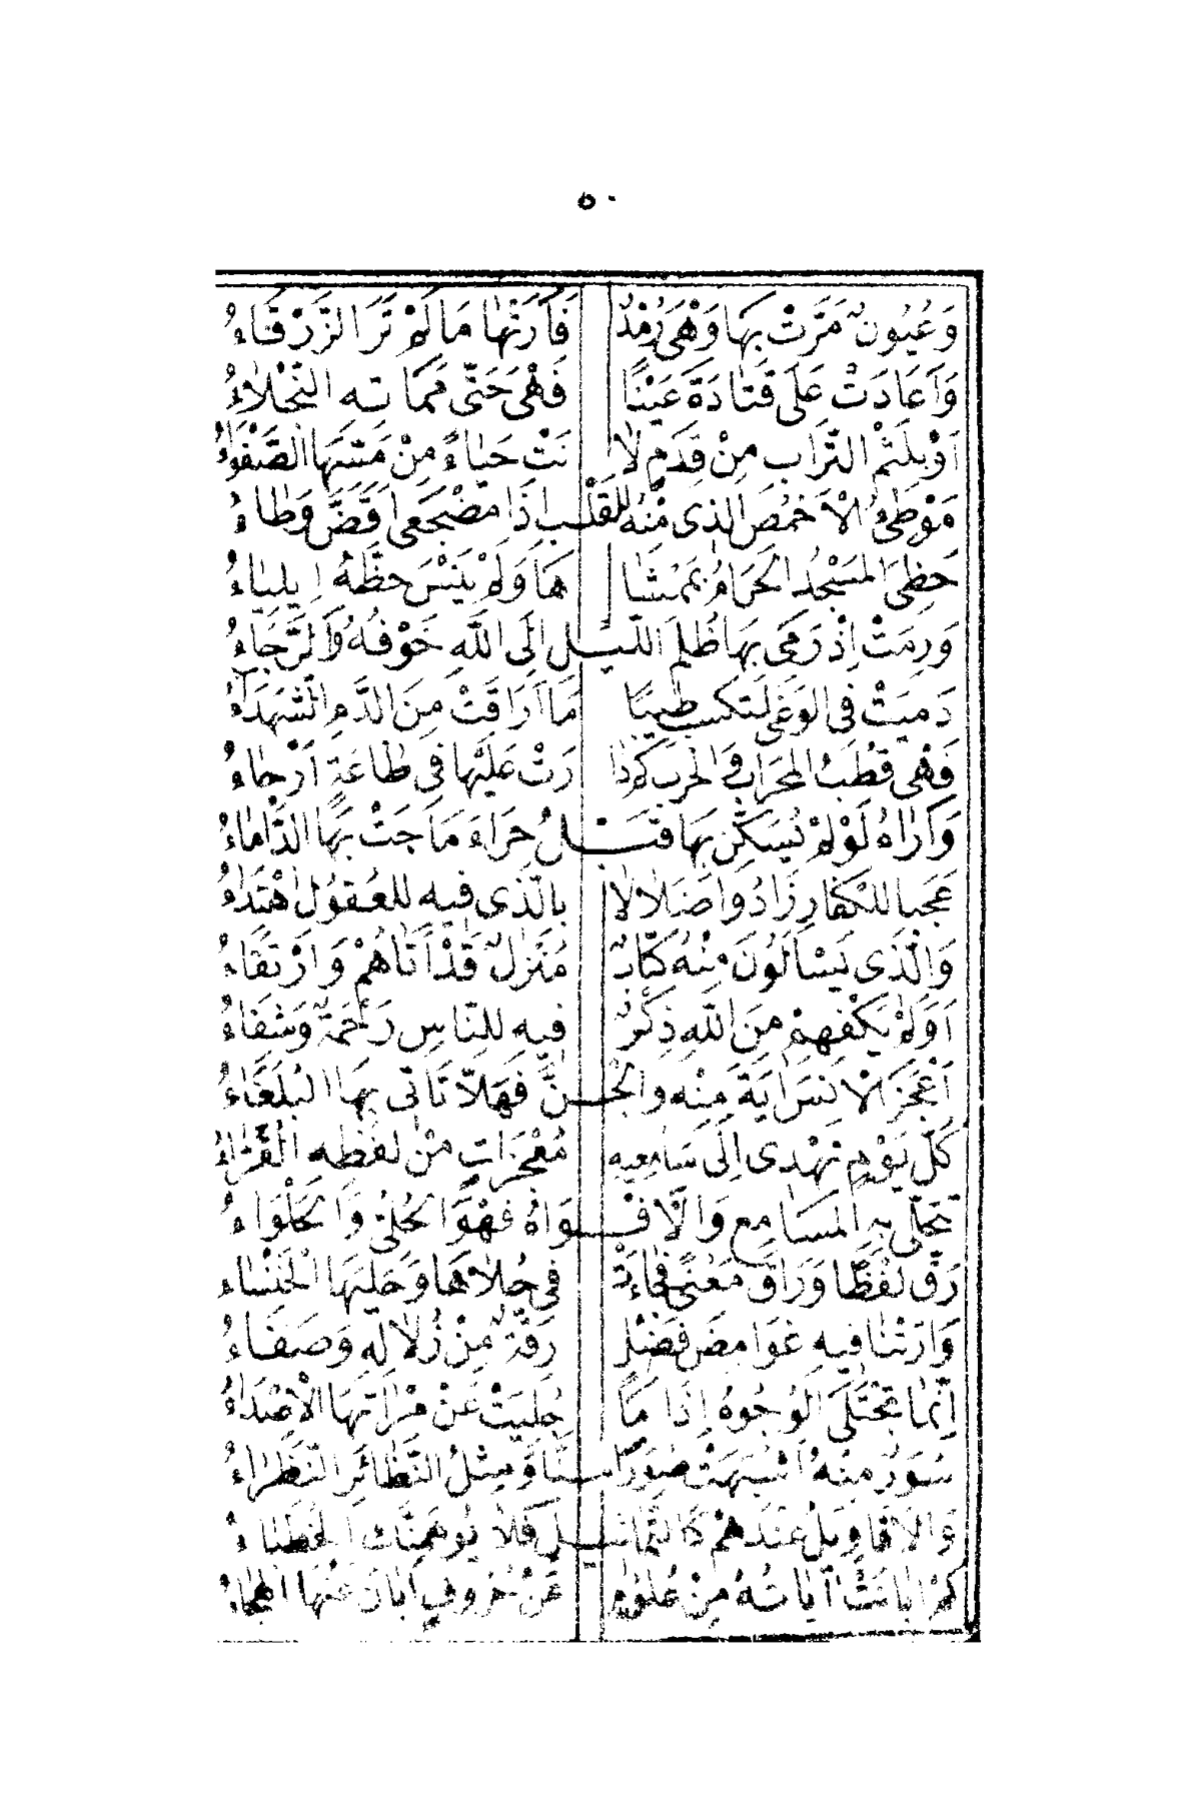 ٥٠
وَعُيُونٌ مَرَّتْ بِهَا وَهْىَ رُمْدٌ فَاَرَتْهَا مَا لَمْ تَرَ الزَّرْقَاءُ
وَاَعَادَتْ عَلَى قَتَادَةَ عَيْنًا فَهْىَ حَتَّى مَمَاتِهِ النَّجْلَاءُ
اَوْ بِلَثْمِ التُّرَابِ مِنْ قَدَمٍ لَا نَتْ حَيَاءً مِنْ مَسِّهَا الصَّفْوَاءُ
مَوْطِئُ الْاَخْمَصِ الذى مِنْهُ لِلْقَلْبِ اِذَا مَضْجَعِى اَقَضَّ وَطَاءُ
حَظِىَ المَسْجِدُ الحَرَامُ بِمَمْشَا هَا وَلَمْ يَنْسَ حَظَّهُ اِيلِيَاءُ
وَرِمَتْ اِذْ رَمَى بِهَا ظُلَمَ اللَّيْلِ اِلَى اللَّهِ خَوْفُهُ وَالرَّجَاءُ
دَمِيَتْ فِى الوَغَى لِتَكْسِبَ طِيبًا مَا اَرَاقَتْ مِنَ الدَّمِ الشُّهَدَاءُ
فَهْىَ قُطْبُ المِحْرَابِ وَالحَرْبِ كَمْ دَا رَتْ عَلَيْهَا فِى طَاعَةٍ اَرْجَاءُ
وَاَرَاهُ لَوْ لَمْ يُسَكِّنْ بِهَا قَبْلُ حِرَاءَ مَاجَتْ بِهَا الدَّأْمَاءُ
عَجَبًا لِلْكُفَّارِ زَادُوا ضَلَالًا بِالَّذِى فِيهِ لِلْعُقُولِ اهْتِدَاءُ
وَالَّذِى يَسْاَلُونَ مِنْهُ كِتَابٌ مُنْزَلٌ قَدْ اَتَاهُمْ وَارْتِقَاءُ
اَوَلَمْ يَكْفِهِمْ مِنَ اللَّهِ ذِكْرٌ فِيهِ لِلنَّاسِ رَحْمَةٌ وَشِفَاءُ
اَعْجَزَ الْاِنْسَ اٰيَةٌ مِنْهُ وَالجِنَّ فَهَلَّا تَاْتِى بِهَا البُلَغَاءُ
كُلَّ يَوْمٍ تُهْدِى اِلَى سَامِعِيهِ مُعْجِزَاتٍ مِنْ لَفْظِهِ القُرَّاءُ
تَتَحَلَّى بِهِ المَسَامِعُ وَالْاَفْوَاهُ فَهْوَ الحُلِىُّ وَالحَلْوَاءُ
رَقَّ لَفْظًا وَرَاقَ مَعْنًى فَجَاءَتْ فِى حُلَاهَا وَحَلْيِهَا الخَنْسَاءُ
وَاَرَتْنَا فِيهِ غَوَامِضَ فَضْلٍ رِقَّةٌ مِنْ زُلَالِهِ وَصَفَاءُ
اِنَّمَا تُجْتَلَى الوُجُوهُ اِذَا مَا جُلِيَتْ عَنْ مِرْاٰتِهَا الْاَصْدَاءُ
سُوَرٌ مِنْهُ اَشْبَهَتْ صُوَرًا مِنَّا وَمِثْلُ النَّظَائِرِ النُّظَرَاءُ
وَالْاَقَاوِيلُ عِنْدَهُمْ كَالتَّمَاثِيلِ فَلَا يُوهِمَنَّكَ الخُطَبَاءُ
كَمْ اَبَانَتْ اٰيَاتُهُ مِنْ عُلُومٍ عَنْ حُرُوفٍ اَبَانَ عَنْهَا الهِجَاءُ